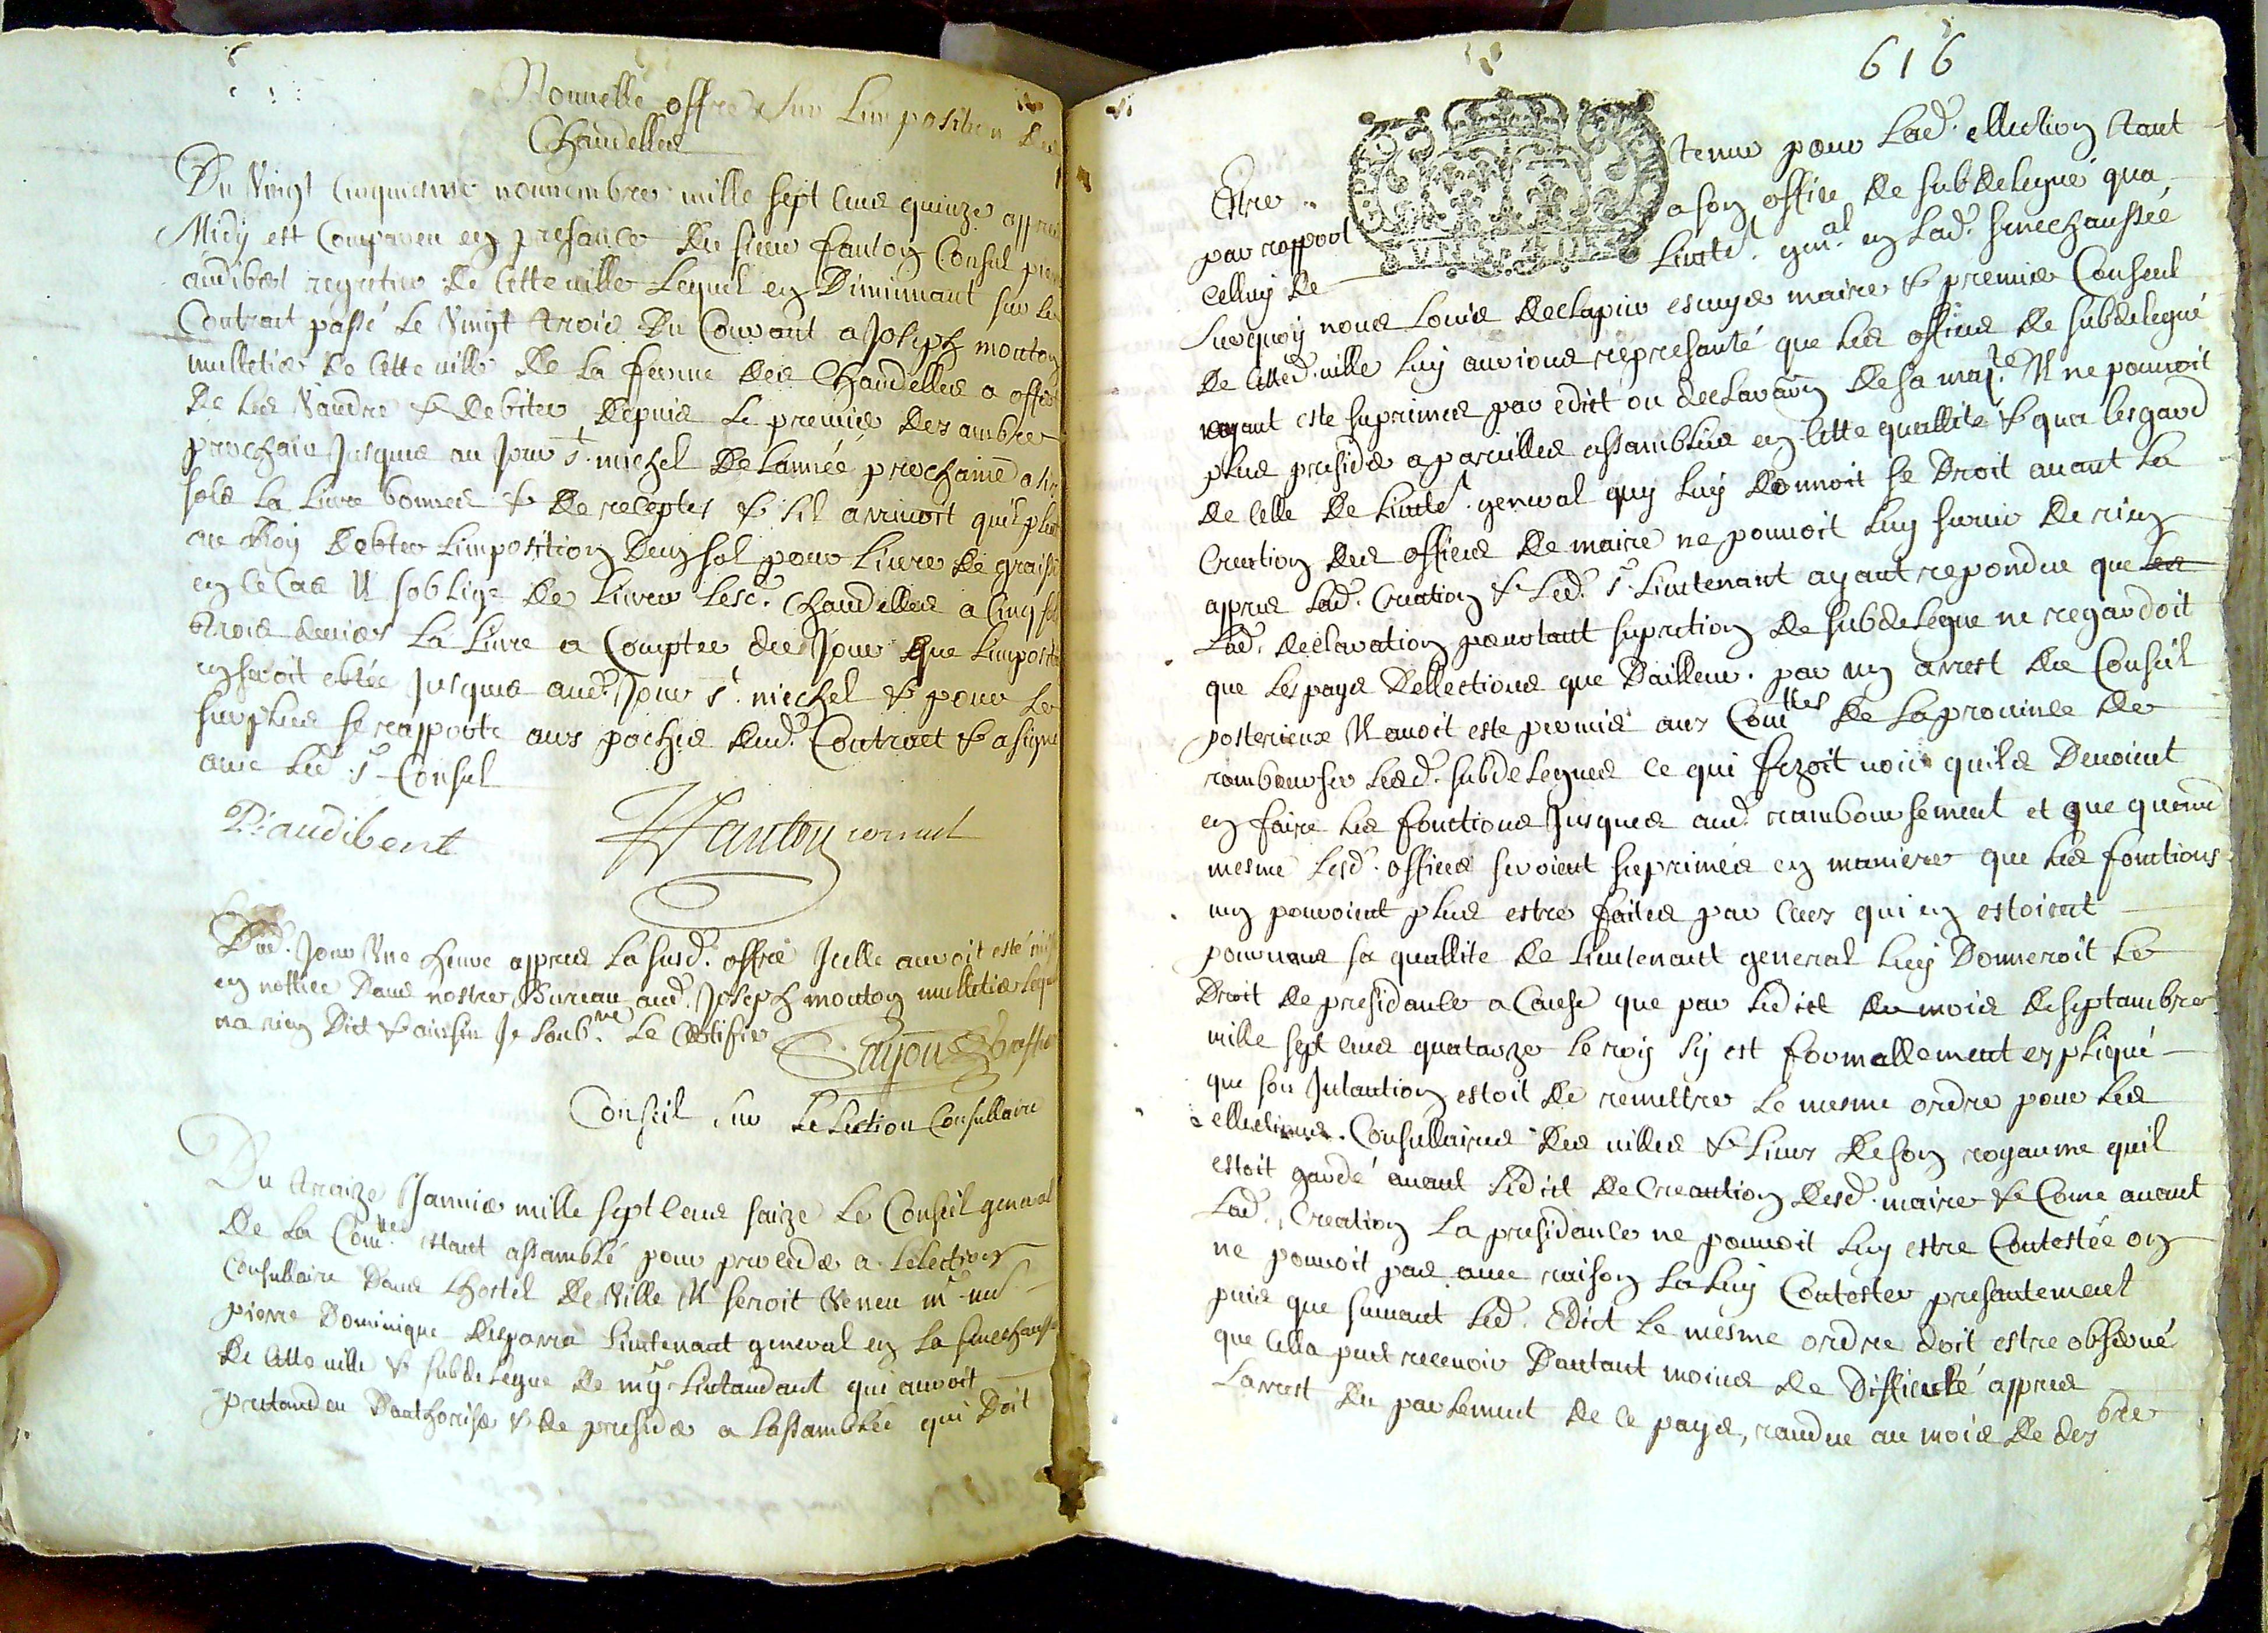 Nouvelle offre sur Limposition des
Chandelles
Du Vingt Cinquiesme novembre mille sept cens quinze appres
Midy est Compareu en presance du sieur fanton Consul pierre
audibert regretier de cette ville Lequel en Diminuant sur le
Contract passé le Vingt trois du Courant a Joseph mouton
mulletier de cette ville de la ferme des Chandelles a offert
de les Vandre & debiter depuis le premier desambre
prochain Jusques au Jour St. michel de lannée prochaine a six
sols la livre bonnes & de receptes & sil arrivoit quil pleut
au Roy dobter Limposition dun sol pour livre de graisse
en ce Cas Il soblige de livrer lesd. Chandelles a Cinq sols
trois deniers la livre a Compter du Jour que Limposition
en seroit obtée Jusques aud. Jour St. michel & pour le
surplus se rapporte aux paches dud. Contract & a signé
avec led. Sr. Consul
P. audibert fanton consul
Dud. Jour Une heure appres la susd. offre Icelle auroit esté mise
en nottice dans nostre Bureau aud. Joseph mouton mulletier lequel
na rien Dict & ainsin Je soub.né le Certifie
Conseil sur Lelection Consullaire
Du traize Janvier mille sept cens saize le Conseil general
de la Com.té estant assamblé pour proceder a lelection
Consullaire dans lhostel de Ville Il seroit Veneu mr. me.
pierre Dominique desparra Lieutenant general en la senechaussée
de cette ville & subdelegue de mgr Lintandant qui auroit
pretandeu dauthoriser & de presider a lassamblée qui doit
616
Estre tenue pour lad. ellection tant
par rapport a son office de subdelegué qua
celluy de Lieutet. gnal. en lad. senechaussée
surquoy nous Louis declapiers escuyer maire & premier Conseul
de cetted. ville luy aurions represanté que les offices de subdelegué
ayant este suprimes par edict ou declaraon de sa majté. Il ne pouvoit
plus presider a pareilles assamblées en cette quallité & qua lesgard
de celle de Lieutet. general quy luy donnoit se droit avant la
Creation des offices de maire ne pouvoit luy servir de rien
appres lad. Creation & led. Sr. Lieutenant ayant repondeu que
lad. declaration portant supretion de subdelegue ne regardoit
que les pays dellections que dailleur. par un arrest du Conseil
posterieux Il avoit este permis aux Comttes de la province de
rambourser lesd. subdelegues ce qui fezoit voir quils devoient
en faire les fonctions Jusques aud. ramboursement et que quand
mesme lesd. offices seroient suprimés en maniere que les fonctions
nen pouroient plus estre faites par ceux qui en estoient
pourveus sa quallite de Lieutenant general luy donneroit le
droit de presidance a Cause que par ledict du mois de septambre
mille sept cens quatorze le roy sy est formallement expliqué
que son Intantion estoit de remettre le mesme ordre pour les
ellections Consullaires des villes & lieux de son royaume quil
estoit gardé avant ledict de Creaution desd. maire & Come avant
lad. Creation la presidance ne pouvoit luy estre Contestée on
ne pouvoit pas avec raison la luy Contester presantement
puis que suivant led. Edict le mesme ordre doit estre observé
que cella peut recevoir dautant moins de difficulté appres
larrest du parlement de ce pays, randeu au mois de dexbre